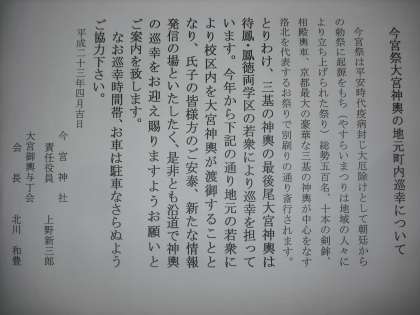 今宮祭大宮神輿の地元町内巡幸について
今宮祭は平安時代疫病封じ大厄除けとして朝廷から
の勅祭に起源をもち（やすらいまつりは地域の人々に
より立ち上げられた祭り）総勢五百名、十本の剣鉾、
相殿輿車、京都最大の豪華な三基の神輿が中心をなす
洛北を代表するお祭りで別刷りの通り斎行されます。
とりわけ、三基の神輿の最後尾大宮神輿は
待鳳・鳳徳両学区の若衆により巡幸を担って
います。今年から下記の通り地元の若衆に
より校区内を大宮神輿が渡御することと
なり、氏子の皆様方のご安泰、新たな情報
発信の場といたしたく、是非とも沿道で神輿
の巡幸をお迎え賜りますようお願いと
ご案内を致します。
なお巡幸時間帯、お車は駐車なさらぬよう
ご協力下さい。
平成二十三年四月吉日
今宮神社
責任役員　上野新三郎
大宮御輿与丁会
会長　北川和豊